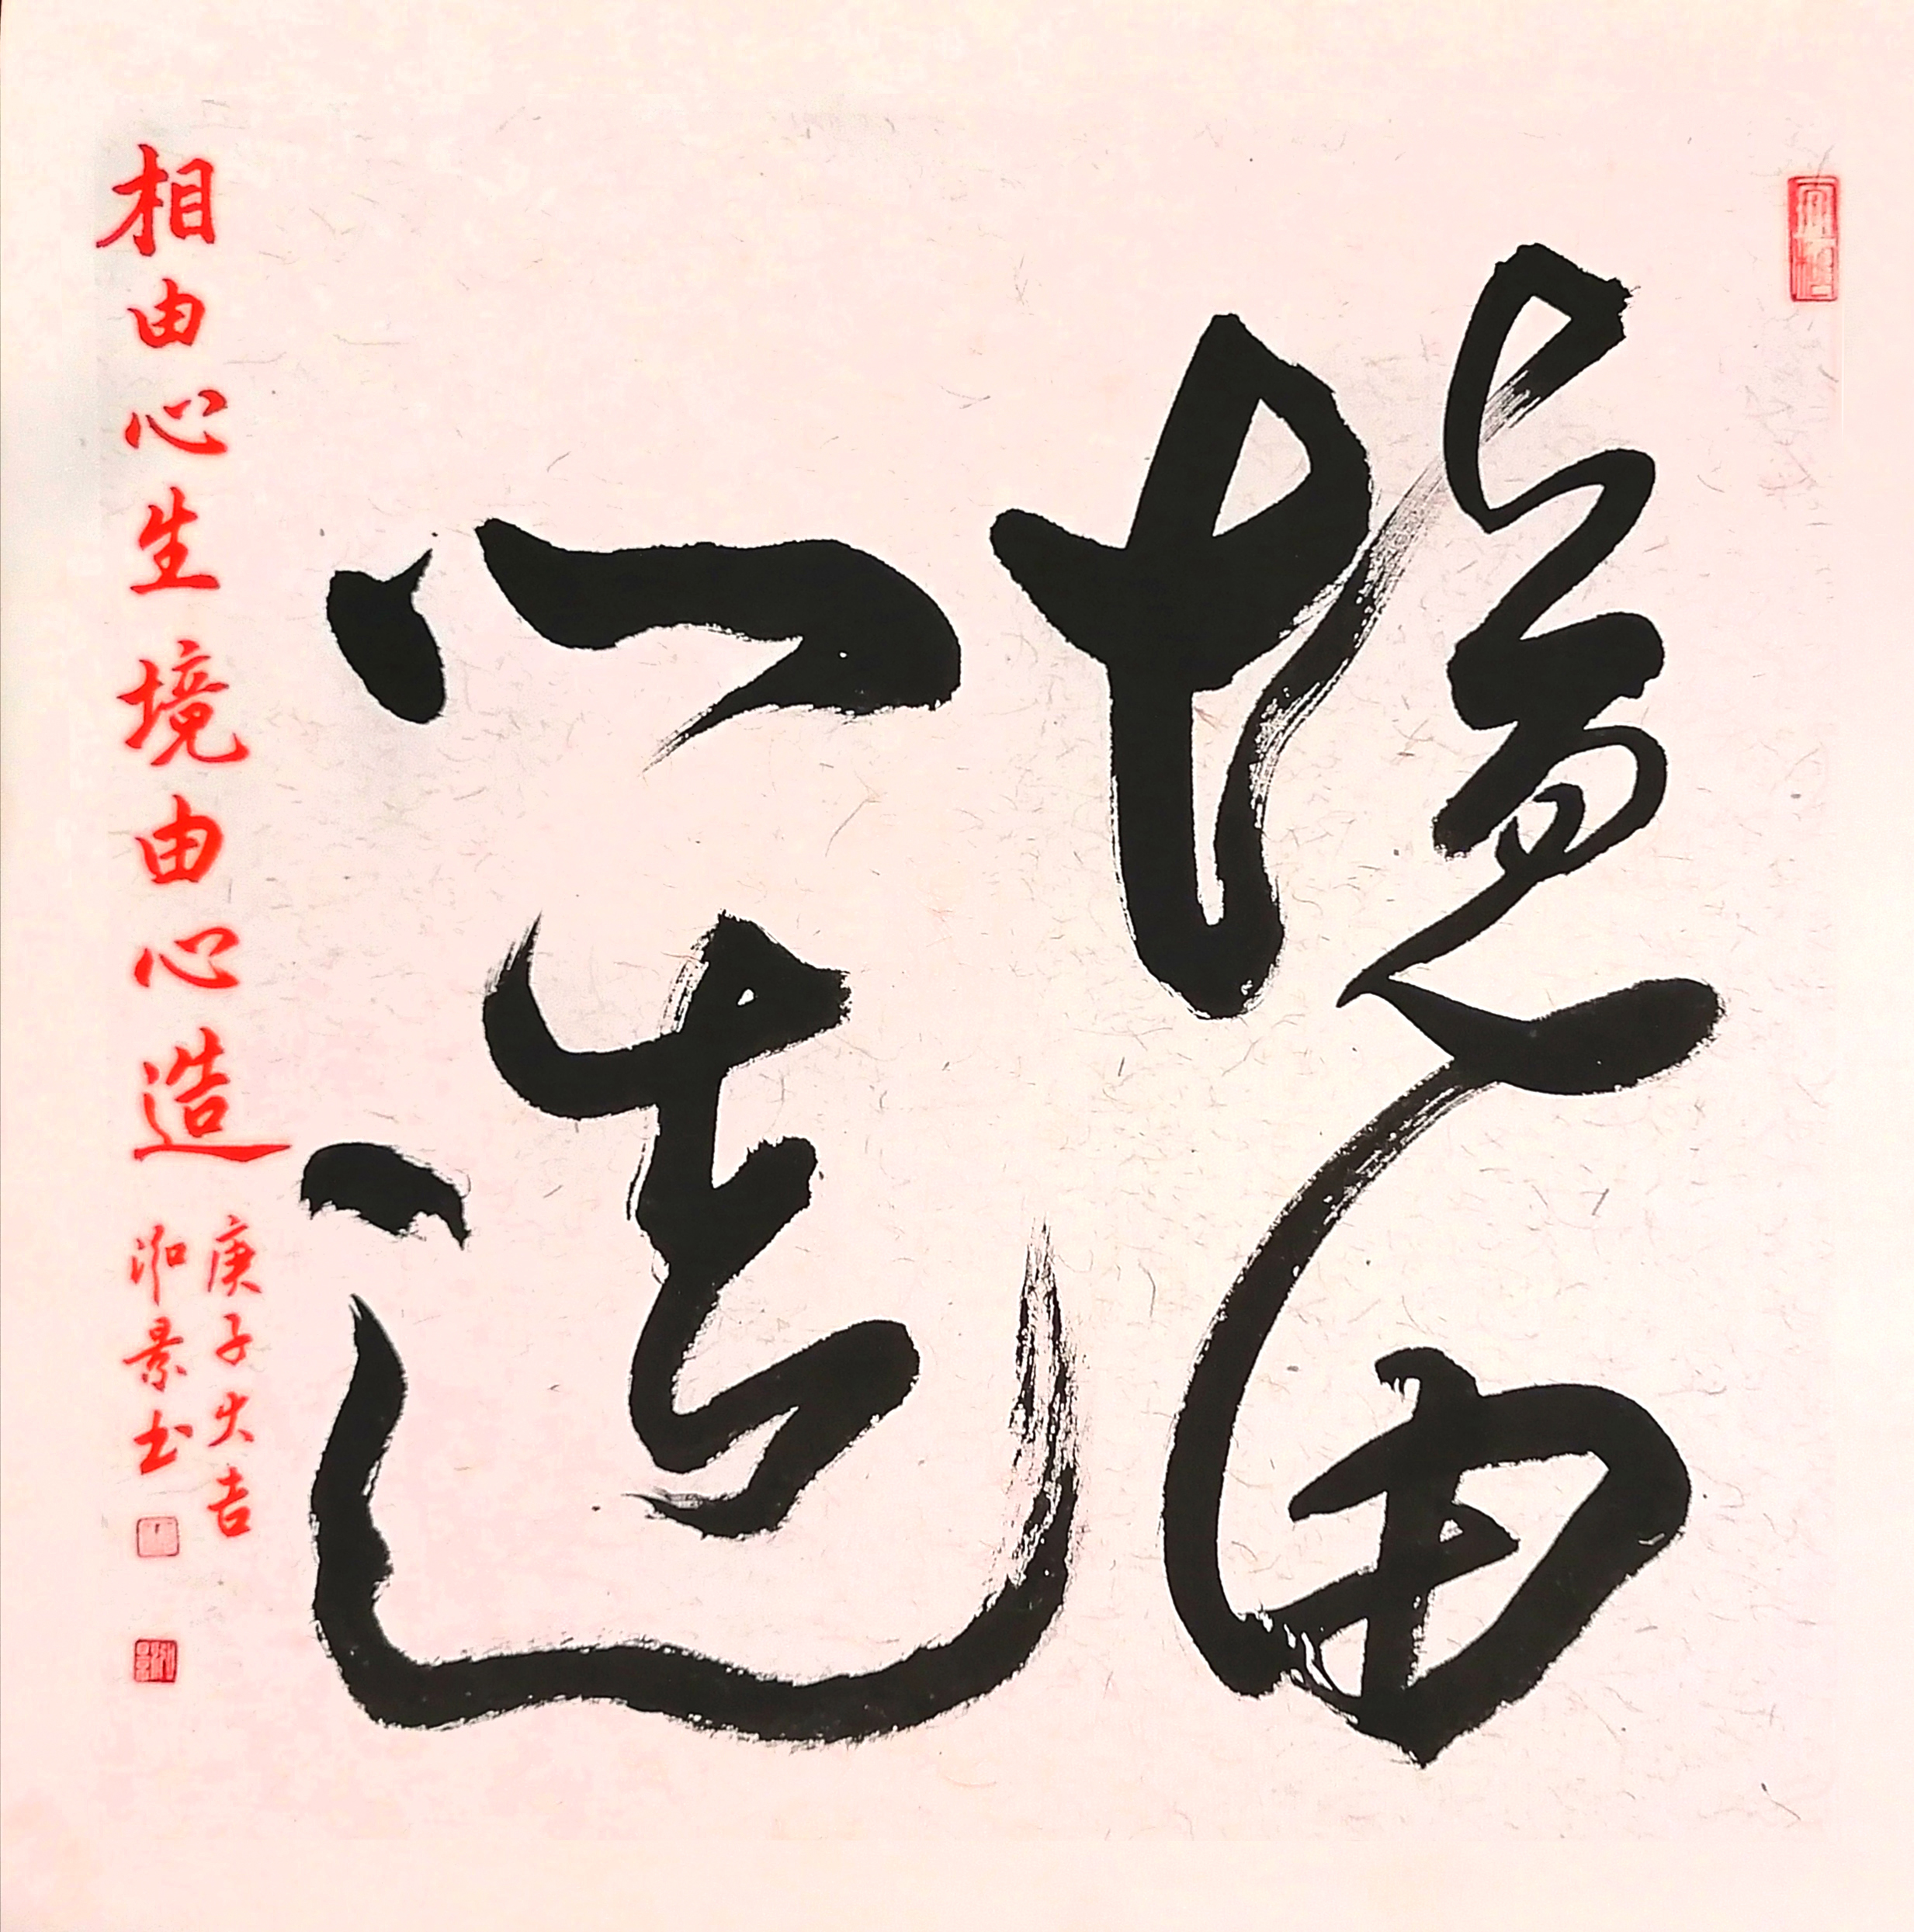 境由
心造
相由心生境由心造
庚子大吉
景书